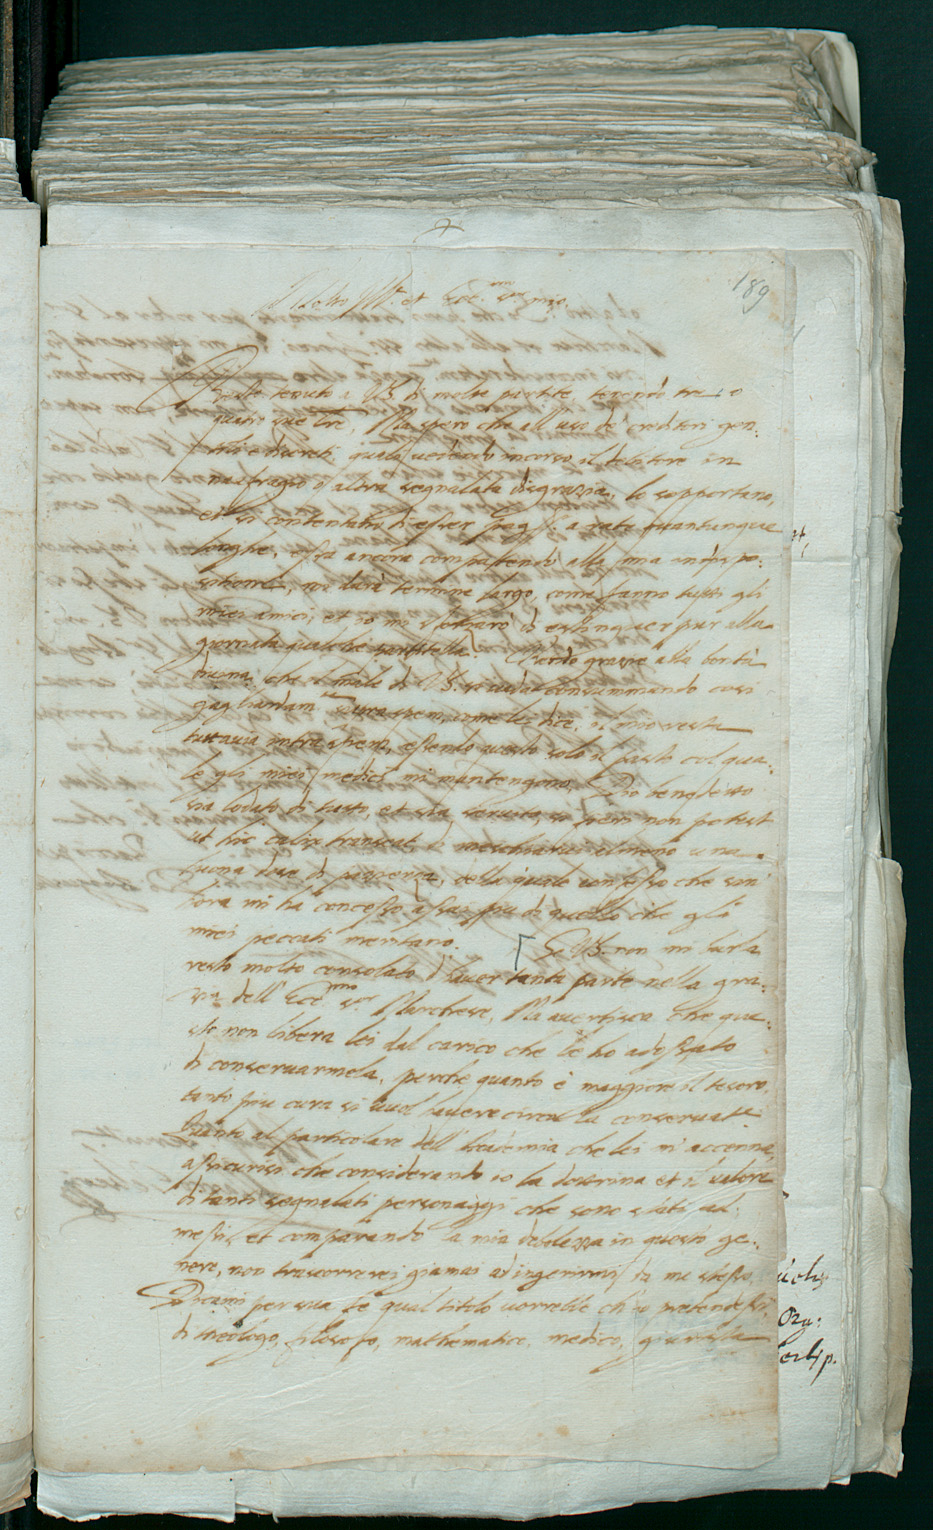 189
Molto Ill.re et Ecc.mo Sr mio
Resto tenuto a VS di molte partite, tenendo tre o
quatro sue lre, Ma spero che all'uso de' creditori gen:
tili e discreti, quali vedendo incorso il debitore in
naufragio o altra segnalata disgrazia, lo sopportano,
et si contentano d'esser pag.ti a rate quantunque
longhe, essa ancora compatendo alla mia indispo:
sitione, mi darà termine largo, come fanno tutti gli
miei amici, et io mi sforzarò di estinguer pur alla
giornata qualche partitella. Rendo grazie alla bontà
divina che il male di VS. si vada consummando così
gagliardam.te supra spem, come lei dice, il mio resta
tuttavia intra spem, essendo questo solo il pasto col qua:
le gli miei medici mi mantengono, Dio benedetto
sia lodato di tutto, et sia servito, si fieri non potest
ut hic calix transeat, di meschiarvi almeno una
buona dose di pazienza, della quale confesso che sin'
hora mi ha concesso assai più di quello che gli
miei peccati meritano. Se VS. non mi burla
resto molto consolato d'haver tanta parte nella gra:
zia dell'Ecc.mo Sor Marchese, Ma avertisca che que:
sto non libera lei dal carico che le ho adossato
di conservarmela, perchè quanto è maggiore il tesoro,
tanto più cura si vuol havere circa la conservat.e
Quanto al particolare dell'Academia che lei m'accenna,
assicurisi che considerando io la dottrina et il valore
di tanti segnalati personaggi che sono stati ad:
messi, et comparando la mia debolezza in questo ge:
nere, non trascorrerei giamai ad ingerirmi da me stesso.
Dicami per sua fe qual titolo vorrebbe ch'io pretendessi
di theologo, filosofo, mathematico, medico, giurista